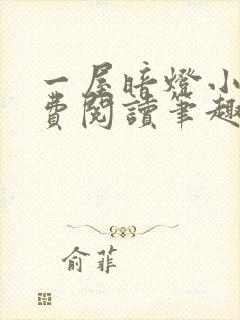 一屋暗燈小
費閱讀筆趣
俞菲